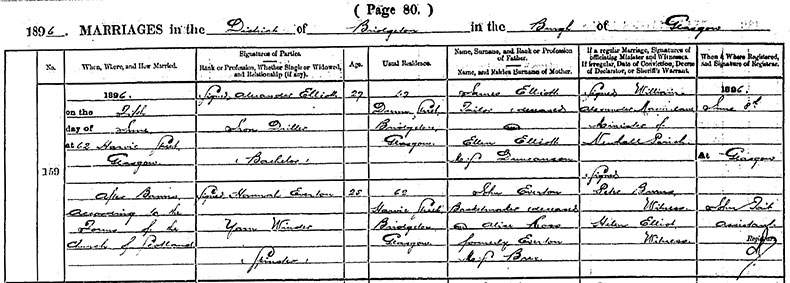 ( Page 80. )
1896. MARRIAGES in the District of Bridgeton in the Burgh of Glasgow
No. When, Where, and How Married. Signatures of Parties. Rank or Profession, Whether Single or Widowed, and Relationship (if any). Age. Usual Residence. Name, Surname, and Rank or Profession of Father. Name, and Maiden Surname of Mother. If a regular Marriage, Signatures of officiating Minister and Witnesses. If irregular, Date of Conviction, Decree of Declarator, or Sheriff's Warrant. When & Where Registered, and Signature of Registrar.
159
1896.
on the Fifth
day of June
at 62 Harvie Street,
Glasgow
After Banns,
according to the
Forms of the
Church of Scotland
Signed Alexander Elliott
Iron Driller
(Bachelor)
Signed Hannah Everton
Yarn Winder
(Spinster)
27
25
62
Street,
Bridgeton,
Glasgow
62
Harvie Street
Bridgeton
Glasgow
James Elliott
Tailor deceased
Ellen Elliott
M.S. Duncanson
John Everton
deceased
Alice
formerly Everton
M.S.
Signed William
Alexander
Minister of
Newhall Parish
Signed
Peter Burns,
Witness
Helen Elliot
Witness
1896.
June 8th
At Glasgow
John Tait
Assistant
Registrar